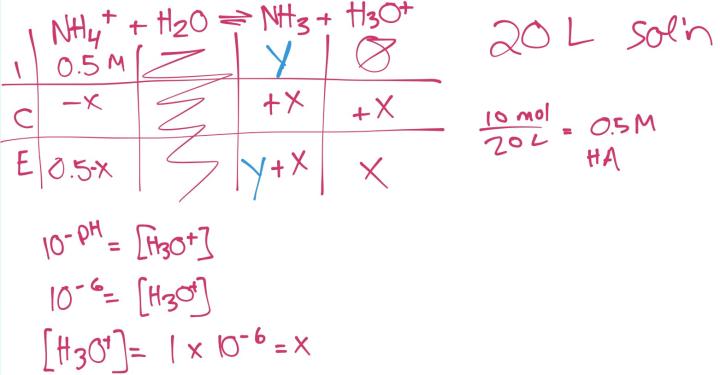 NH₄⁺ + H₂O ⇌ NH₃ + H₃O⁺
I 0.5 M Y Ø
C -X +X +X
E 0.5-X Y+X X
20 L Sol'n
10 mol / 20 L = 0.5M
HA
10^-pH = [H₃O⁺]
10^-6 = [H₃O⁺]
[H₃O⁺] = 1 x 10^-6 = X